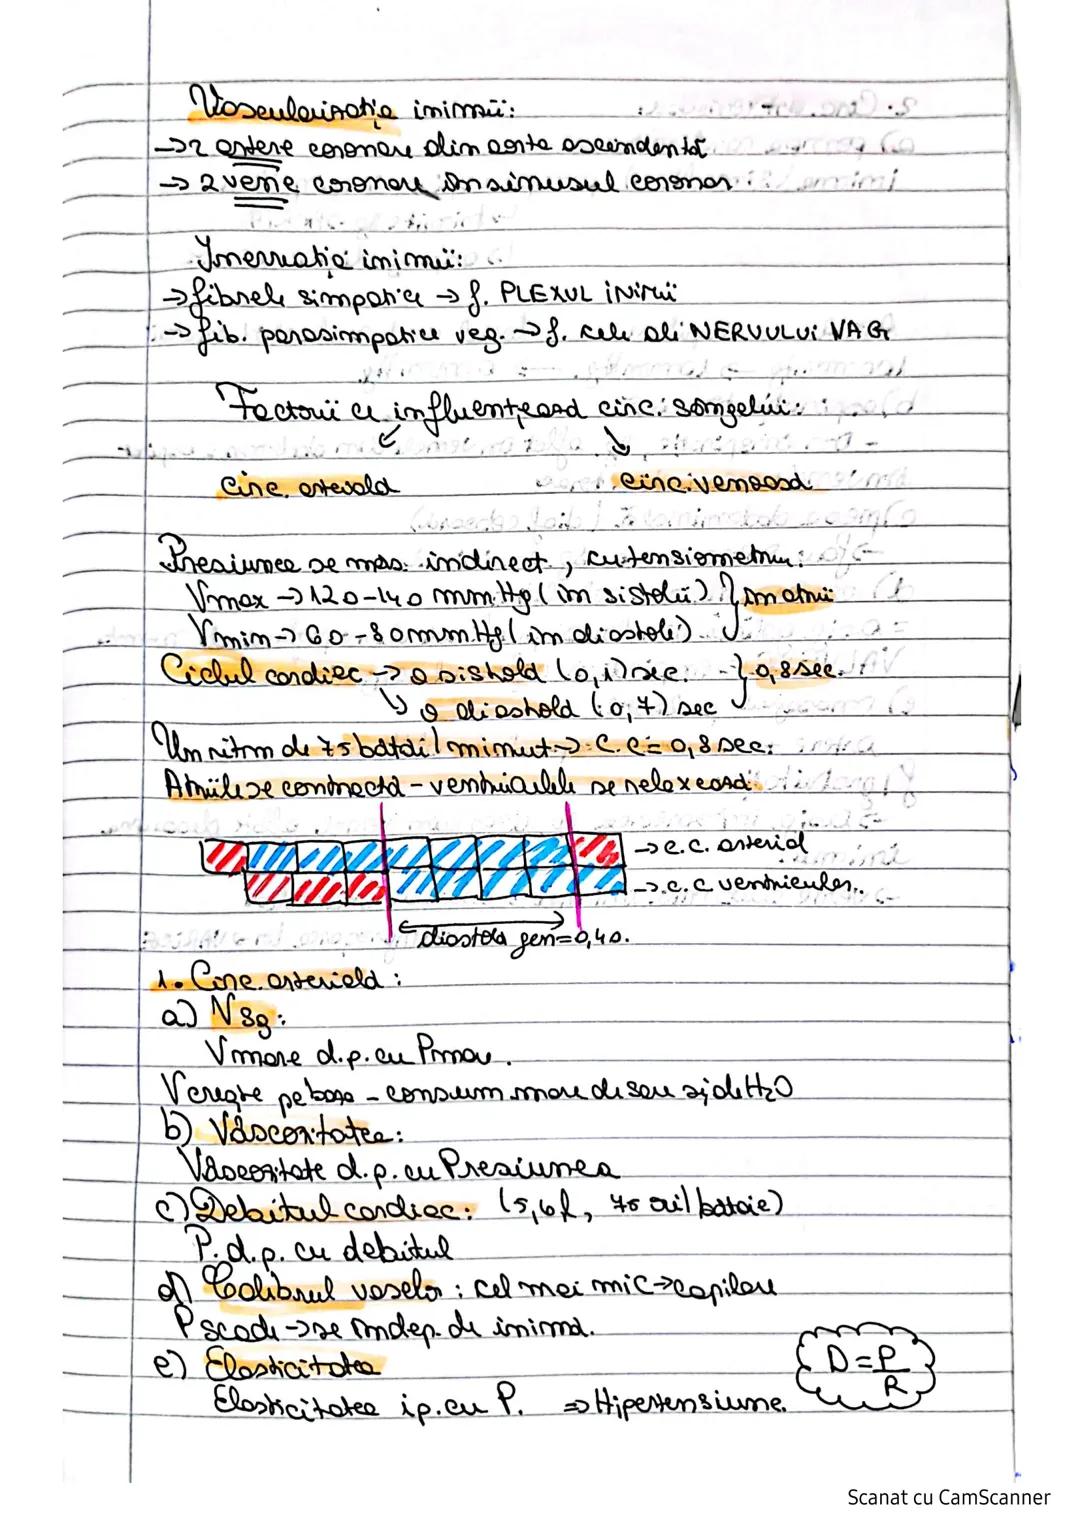 Vascularizația inimii:
→ 2 artere coronare din aorta ascendentă
→ 2 vene coronare în sinusul coronar
Inervația inimii:
→ fibrele simpatice → f. PLEXUL INIMII
→ fib. parasimpatice veg. → f. cele ale NERVULUI VAG
Factorii ce influențează circ. sângelui:
circ. arterială circ. venoasă
Presiunea se măs. indirect, cu tensiometru:
Vmax → 120-140 mmHg (în sistolă) } în artrii
Vmin → 60-80 mmHg (în diastolă)
Ciclul cardiac → o sistolă (0,1) sec. } 0,8 sec.
↳ o diastolă (0,7) sec
Un ritm de 75 bătăi/minut → C.C = 0,8 sec.
Atriile se contractă - ventriculele se relaxează
→ c.c. arterial
→ c.c ventricular
diastola gen = 0,40.
1. Circ. arterială:
a) VSg:
V mare d.p. cu P mare.
V crește pe baza - consum mare de sare și de H2O
b) Vâscozitatea:
Vâscozitate d.p. cu Presiunea
c) Debitul cardiac: (5,6 l, 75 ml/bătaie)
P. d.p. cu debitul
d) Calibrul vaselor: cel mai mic → capilare
P scade → se îndep. de inimă.
e) Elasticitatea
Elasticitatea ip. cu P. ⇒ Hipertensiune.
D = P/R
Scanat cu CamScanner